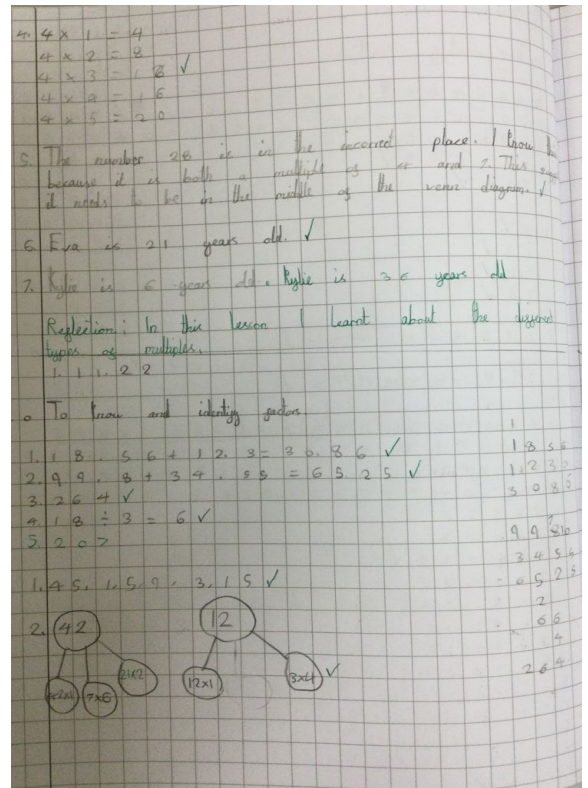 4. 4 × 1 = 4
4 × 2 = 8
4 × 3 = 1 8 ✓
4 × 4 = 1 6
4 × 5 = 2 0
5. The number 28 is in the incorrect place. I know
because it is both a multiple of 4 and 7. This
it needs to be in the middle of the venn diagram. ✓
6. Eva is 21 years old. ✓
7. Kylie is 6 years old. Kylie is 36 years old
Reflection: In this lesson I learnt about the different
types of multiples.
1. 1 1. 2 2
To know and identify factors
1. 1 8 . 5 6 + 1 2. 3 = 3 0. 8 6 ✓
2. 9 9. 8 + 3 4. 5 5 = 6 5. 2 5 ✓
3. 2 6 4 ✓
4. 1 8 ÷ 3 = 6 ✓
5. 2 0 7
1. 4 5, 1, 5, 9, 3, 1 5 ✓
2. 42 12
21x2
7x6 12x1 3x4 ✓
1
1 8 5 6
1 2 3 0
3 0 8 6
9 9 8 10
3 4 5 5
6 5 2 5
2
6 6
4
2 6 4